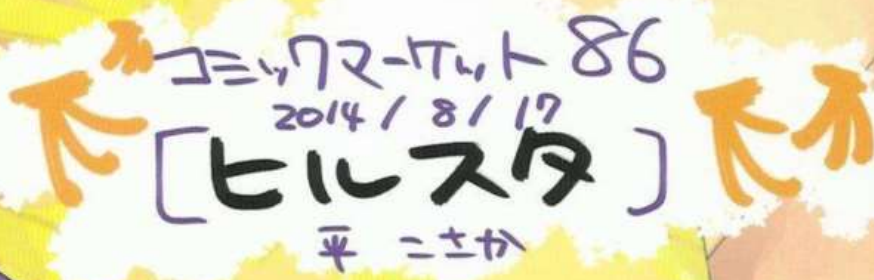 コミックマーケット 86
2014 / 8 / 17
[ヒルスタ]
平 こさか